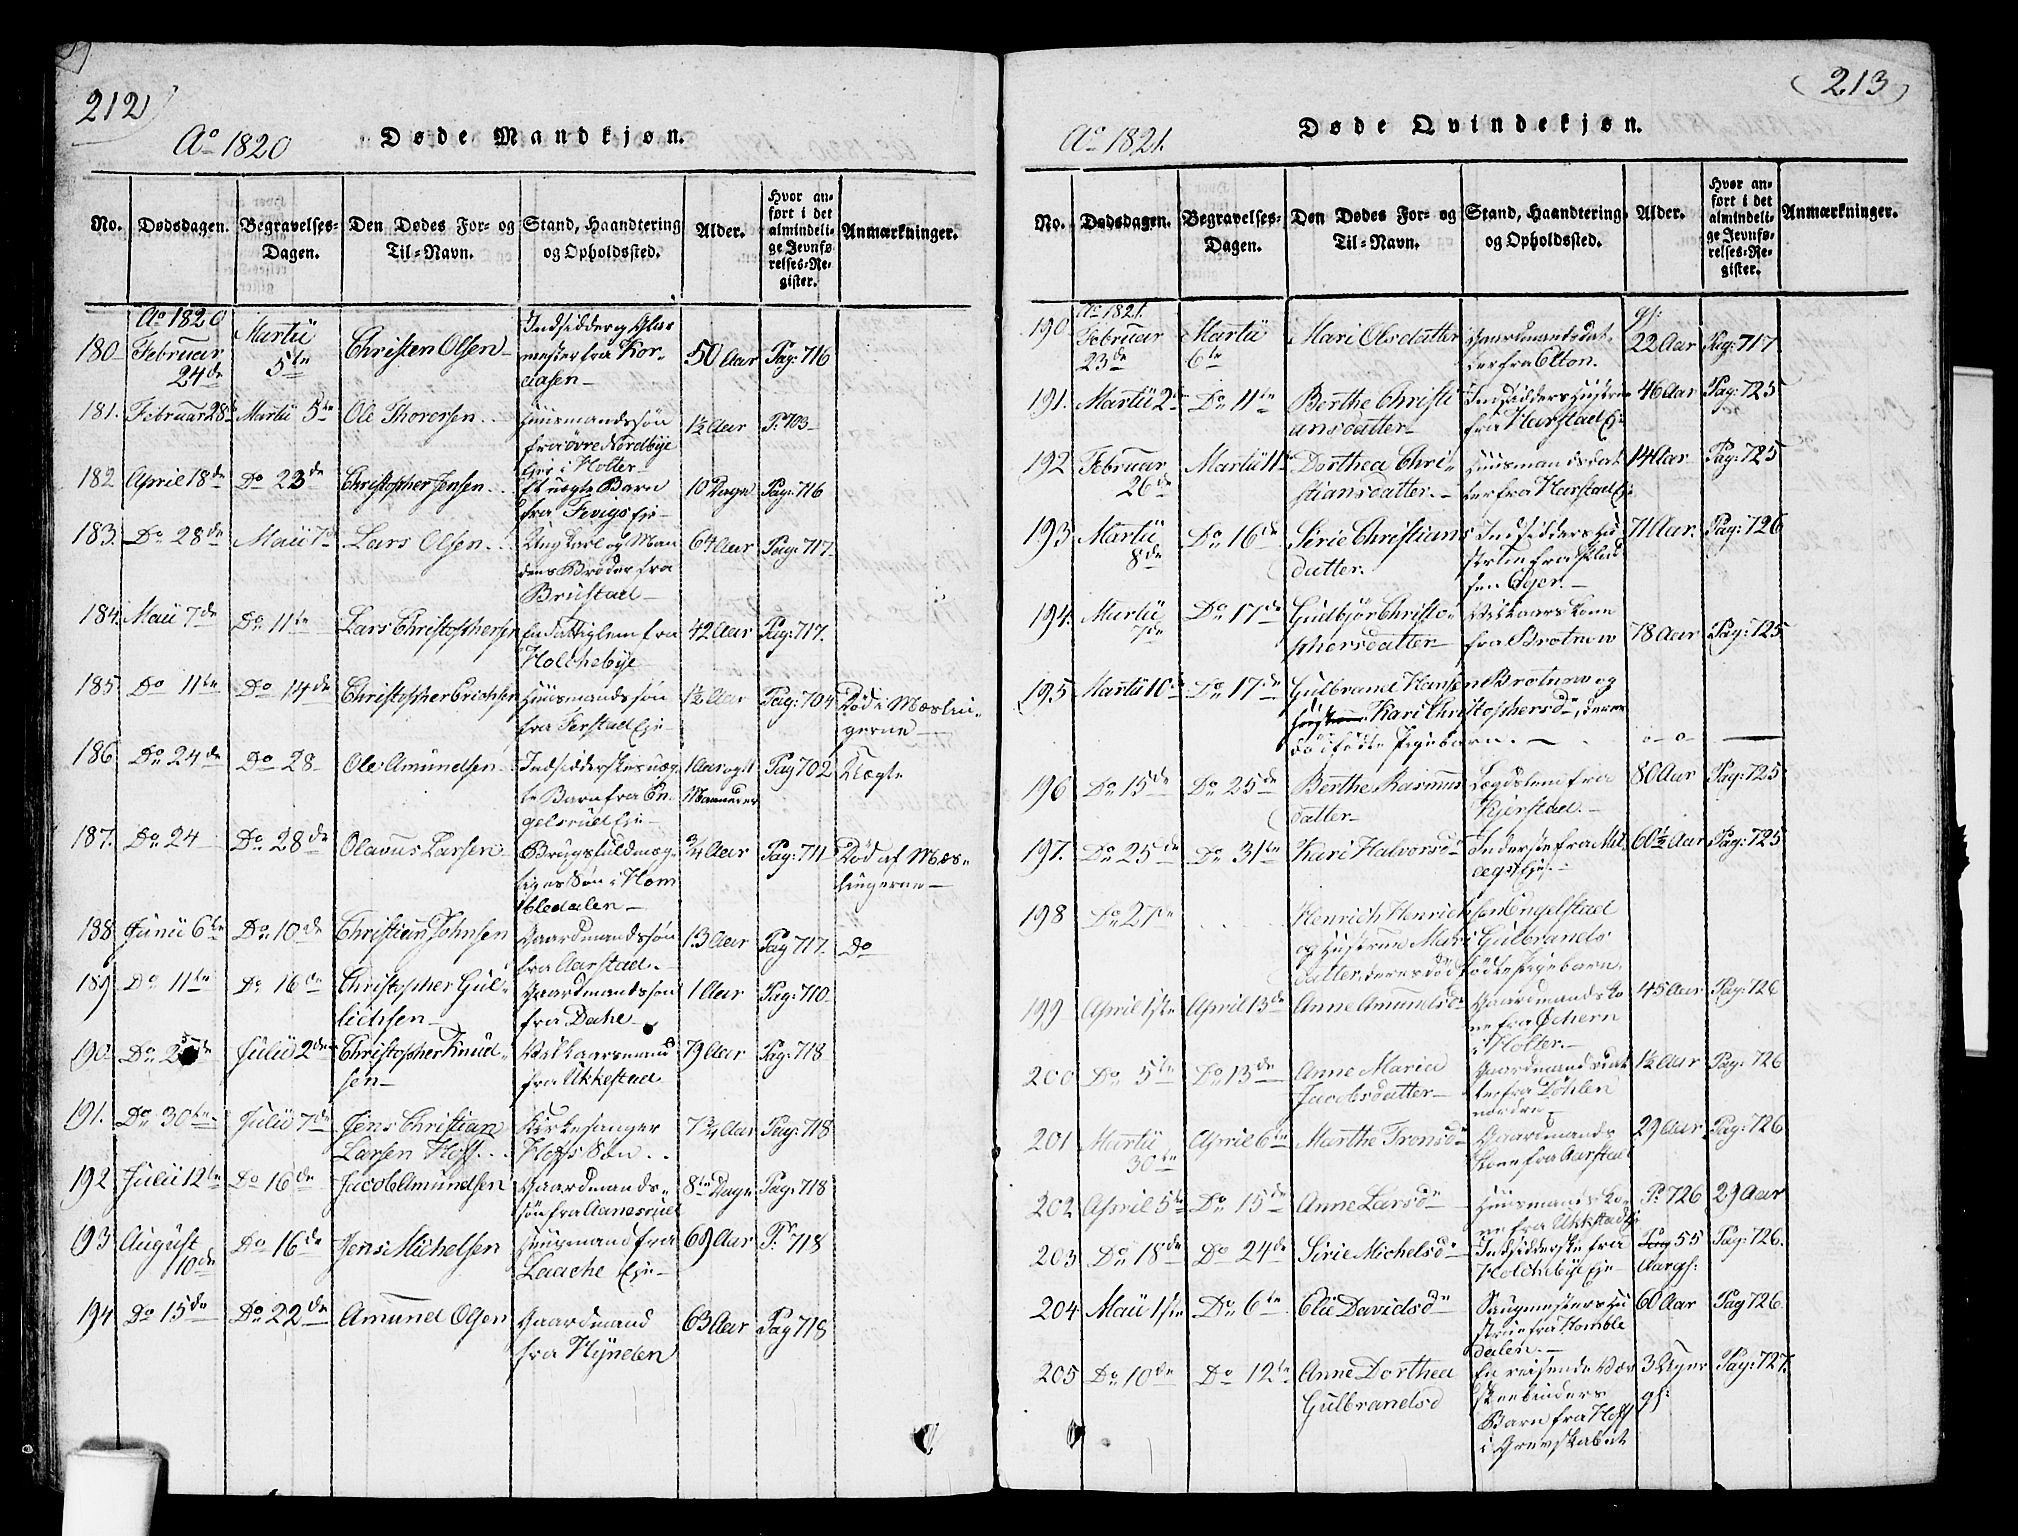 212
Ao 1820
Døde Mandkjøn.
No. Dødsdagen. Begravelses-Dagen. Den Dødes For- og Til-Navn. Stand, Haandtering og Opholdssted. Alder. Hvor anført i det almindelige Jevnførelses-Register. Anmærkninger.
180 Ao 1820 Februar 24de Martii 5te Christen Olsen Indsidder og Glarmester fra 50 Aar Pag: 716
181. Februar 28de Martii 5te Ole Thorersen Huusmandssøn fra øvre Nordbye Eje i Holter 1½ Aar P: 703
182 April 18de Do 23de Christopher Jensen Et uægte Barn fra Fevigs Eje 10 Dage Pag: 716
183. Do 28de Maii 7de Lars Olsen Ungkarl og Mandens Broder fra Brustad 64 Aar Pag: 717
184. Maii 7de Do 11te Lars Christophersen En Fattiglem fra Holchebye 42 Aar Pag: 717.
185 Do 11te Do 14de Christopher Erichsen Huusmandssøn fra Ferstad Eje 1½ Aar Pag: 704 Død i Mæslingerne
186 Do 24de Do 28 Ole Amundsen Indsidderskes uægte Barn fra Engelsrud Eje 1 Aar og 11 Maaneder Pag 702 Uægte
187. Do 24 Do 28de Olavus Larsen Brugsfuldmægtiges Søn i Hombledalen ¾ Aar Pag: 711 Død af Mæslingerne
188 Junii 6te Do 10de Christian Johnsen Gaardmandssøn fra Aarstad 13 Aar Pag 717. Do
189 Do 11te Do 16de Christopher Gullichsen Gaardmandssøn fra Dahe 1 Aar Pag: 710
190. Do 25de Julii 2den Christopher Knudsen Vilkaarsmand fra Ukkestad 79 Aar Pag: 718
191. Do 30te Julii 7de Jens Christian Larsen Hoff Kirkesanger Hoffs Søn 7¾ Aar Pag: 718
192 Julii 12te Do 16de Jacob Amundsen Gaardmandssøn fra Aanesrud 8te Dage Pag: 718
193 August 10de Do 16de Jens Michelsen Huusmand fra Laache Eje 69 Aar P: 718
194 Do 15de Do 22de Amund Olsen Gaardmand fra Hynden 63 Aar Pag 718
213
Ao 1821.
Døde Qvindekjøn.
No. Dødsdagen. Begravelses-Dagen. Den Dødes For- og Til-Navn. Stand, Haandtering og Opholdssted. Alder. Hvor anført i det almindelige Jevnførelses-Register. Anmærkninger.
190 Ao 1821. Februar 23de Martii 6te Mari Olsdatter Gaardmandsdatter fra Elton. gl: 22 Aar Pag: 717
191. Martii 2de Do 11te Berthe Christiansdatter Indsidders Hustru fra Harstad Eje 46 Aar Pag: 725
192 Februar 26de Martii 11te Dorthea Christiansdatter Huusmandsdatter fra Harstad Eje 14 Aar Pag: 725
193 Martii 8de Do 16de Sirie Christiansdatter. Indsidders Hustrue fra 71 Aar. Pag: 726
194. Martii 7de Do 17de Gulbjør Christophersdatter Vilkaars Kone fra Brotnow 78 Aar Pag: 725
195 Martii 10de Do 17de Gulbrand Hansen Brotnow og Hustrue Kari Christophersd, deres dødfødte Pigebarn. o-o
196 Do 15de Do 25de Berthe Rasmusdatter Lægdslem fra Kjerstad 80 Aar Pag: 725
197. Do 25de Do 31te Kari Halvorsd Inderste fra Eje 60½ Aar Pag: 725
198 Do 27de Henrich Henrichsen Engelstad og Hustrue Mari Gulbrandsdatter, deres dødfødte Pigebarn.
199 April 1ste April 13de Anne Amundsd Gaardmandskone fra Ochern i Holter 45 Aar Pag: 726
200 Do 5te Do 13de Anne Maria Jacobsdatter Gaardmandsdatter fra Løhlen nordre 1½ Aar Pag: 726
201 Martii 30te April 6te Marthe Tronsd Gaardmands Kone fra Aarstad 29 Aar Pag: 726
202 April 5te Do 15de Anne Larsd Huusmandskone fra Ukkstad Eje P: 726 29 Aar
203 Do 18de Do 24de Sirie Michelsd Indsidderske fra Holchebye Eje Pag 55 Aar gl: Pag: 726.
204 Maii 1ste Do 6te Elie Davidsd Saugmesters Hustrue fra Hombledalen 60 Aar Pag 726
205 Do 10de Do 12te Anne Dorthea Gulbrandsd En reisende Barn fra Hoff i Grevskabet 3 Uger gl: Pag: 727.